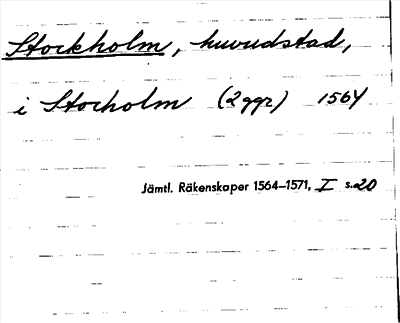 Stockholm, huvudstad,
i Stocholm (2ggr) 1564
Jämtl. Räkenskaper 1564–1571, I s.20